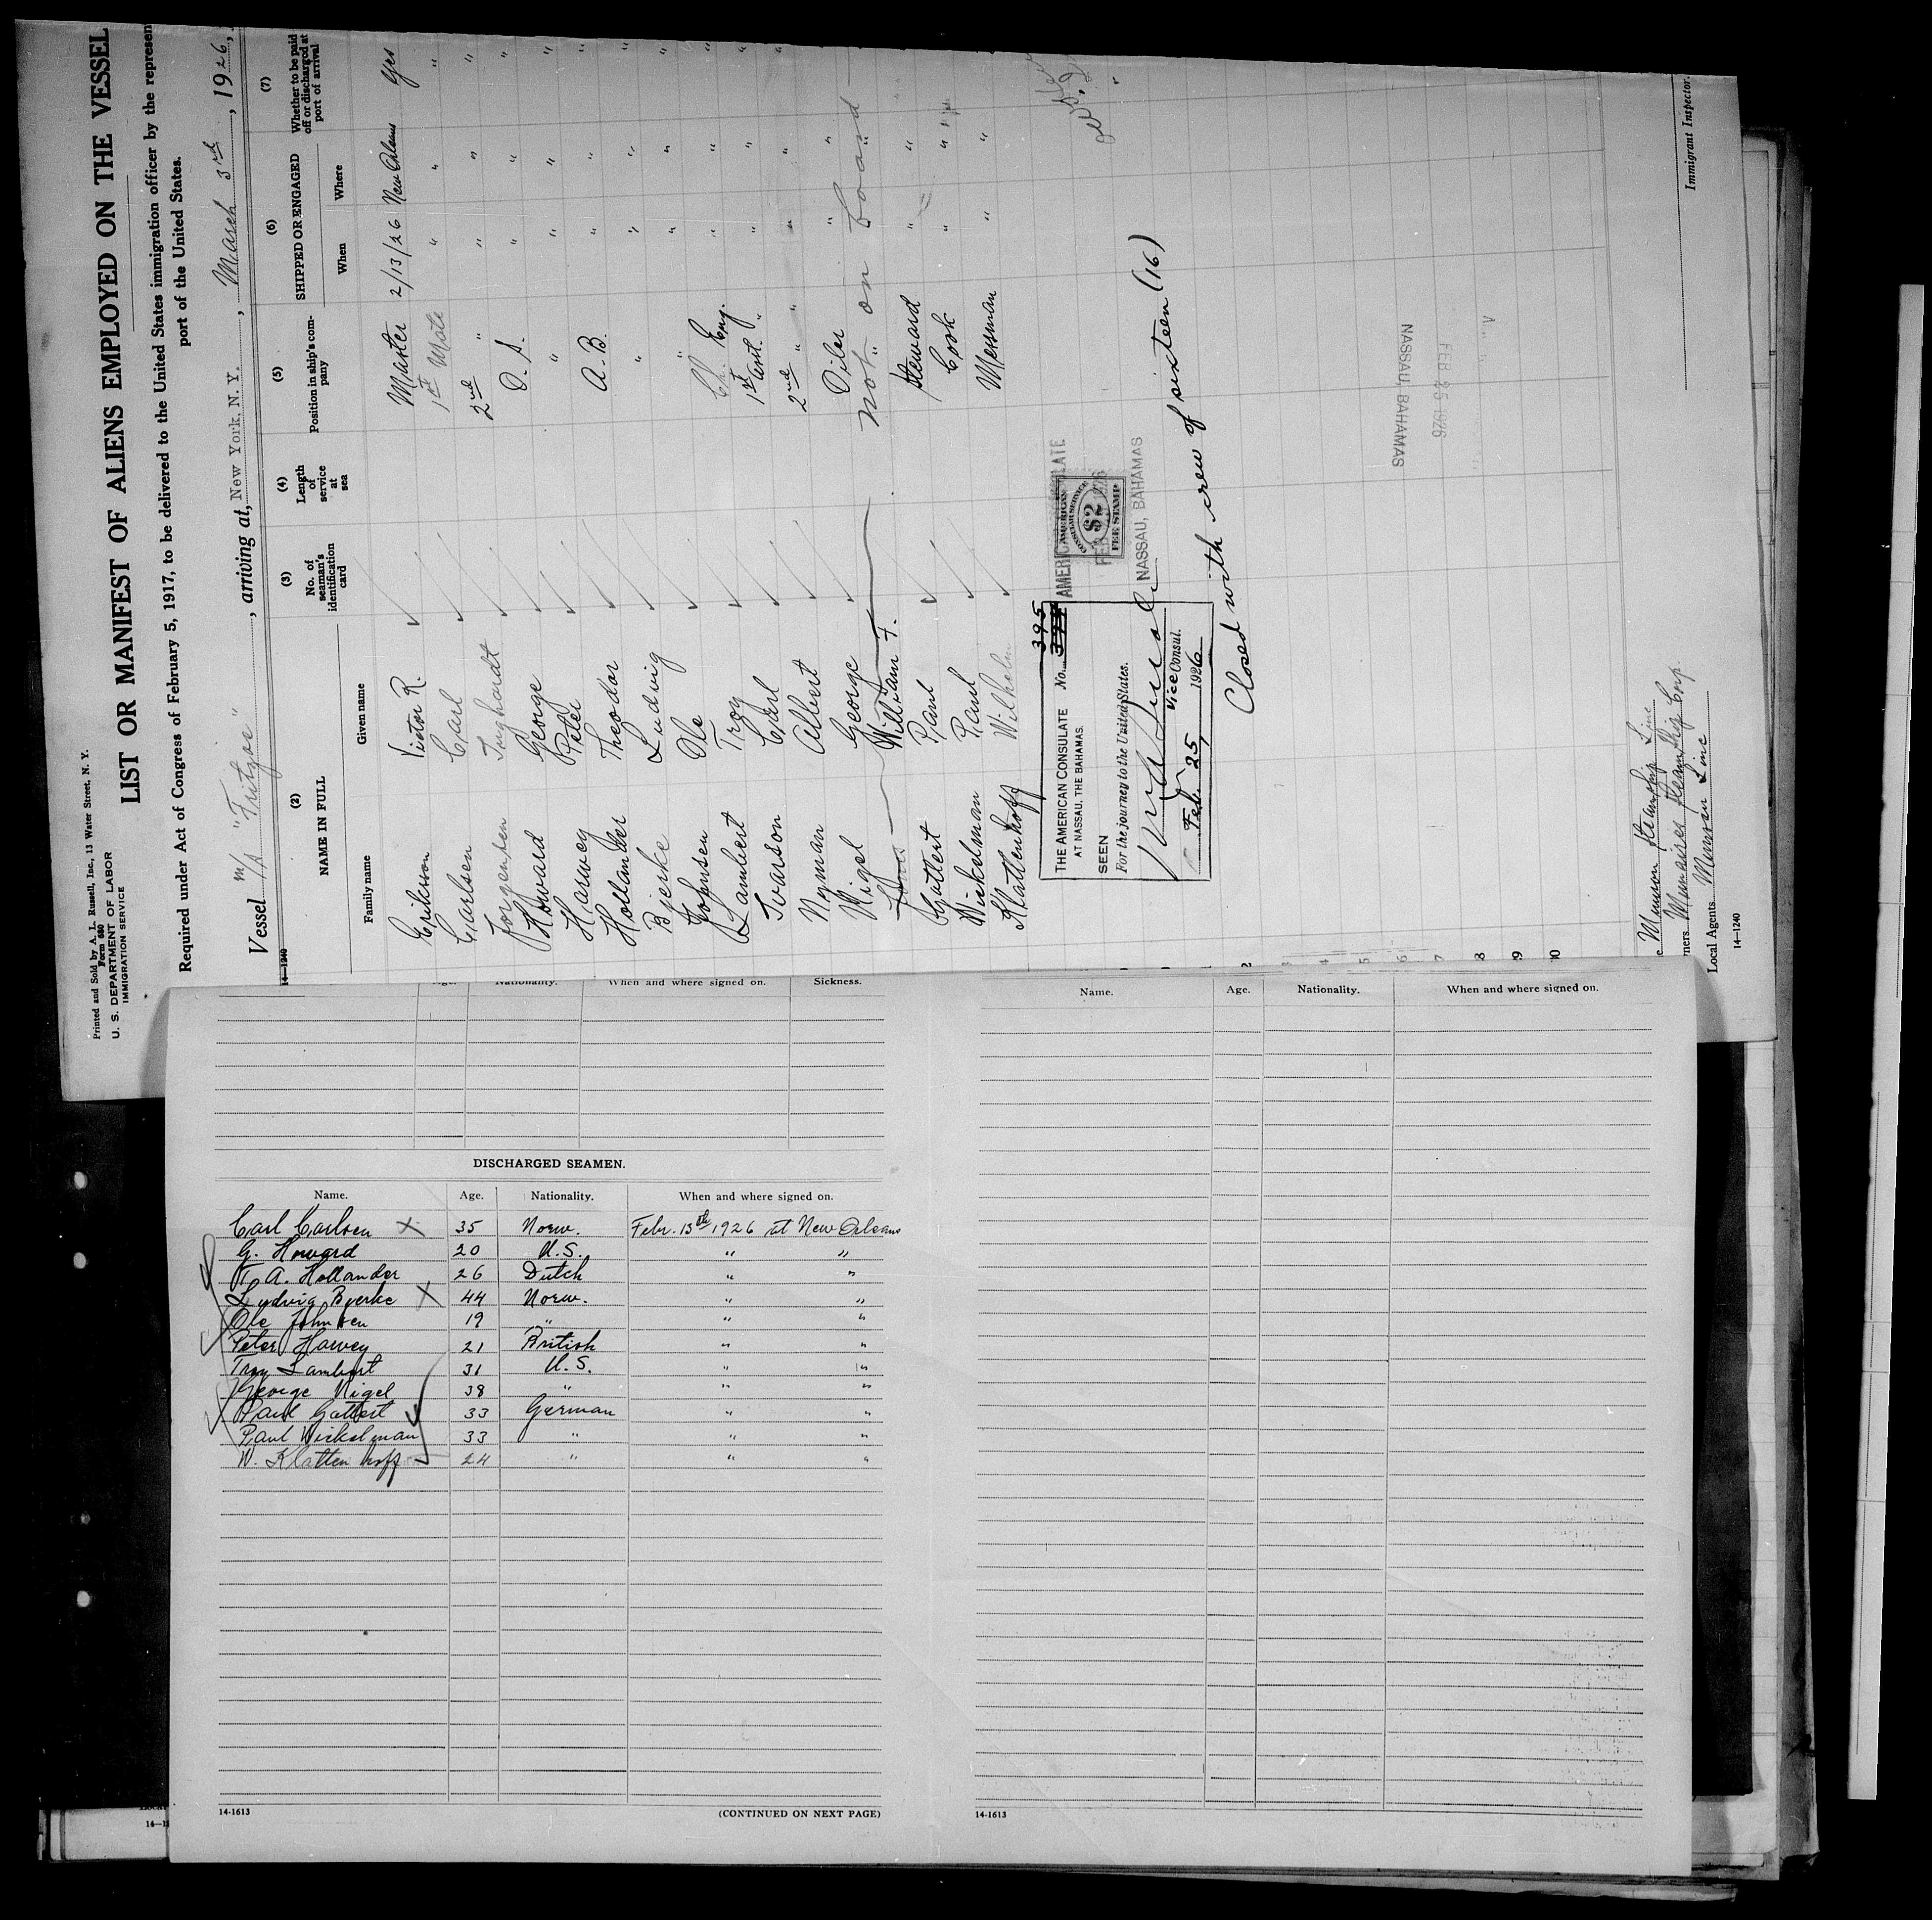 Printed and Sold by A. L. Russell, Inc., 13 Water Street, N. Y.
Form 680
U. S. DEPARTMENT OF LABOR
IMMIGRATION SERVICE
LIST OR MANIFEST OF ALIENS EMPLOYED ON THE VESSEL
Required under Act of Congress of February 5, 1917, to be delivered to the United States immigration officer by the represen
port of the United States.
Vessel M/S "Fritzoe", arriving at, New York, N. Y., March 3rd, 1926,
14—1240
(2) (3) (4) (5) (6) (7)
NAME IN FULL No. of seaman's identification card Length of service at sea Position in ship's company SHIPPED OR ENGAGED Whether to be paid off or discharged at port of arrival
Family name Given name When Where
Erikson Victor R. Master 2/13/26 New Orleans Yes
Carlsen Carl 1st Mate " " "
Jorgensen Inghardt 2nd " " " "
Howard George O. S. " " "
Harvey Peter " " " "
Hollander Theodor A. B. " " "
Bjerke Ludvig " " " "
Johnsen Ole " " " "
Lambert Troy Ch. Eng. " " "
Ivarson Carl 1st Asst. " " " "
Nyman Albert 2nd " " " " "
Nigel George Oiler " "
Jones William F. not on board
Gattert Paul Steward " "
Wickelman Paul Cook " "
Klattenhoff Wilhelm Messman " "
THE AMERICAN CONSULATE No. 395
AT NASSAU, THE BAHAMAS.
SEEN
For the journey to the United States.
Vice Consul.
Feb. 25, 1926
AMERICAN CONSULATE
AMERICAN
CONSULAR SERVICE
$2
FEE STAMP
NASSAU, BAHAMAS
Closed with crew of sixteen (16)
NASSAU, BAHAMAS
FEB 25 1926
2
3
4
5
6
7
8
9
10
Munson Steamship Line
ners Munaires Steamship Corp
Local Agents Munson Line
14—1240
Immigrant Inspector.
Nationality. When and where signed on. Sickness.
DISCHARGED SEAMEN.
Name. Age. Nationality. When and where signed on.
Carl Carlsen X 35 Norw. Febr. 13th 1926 at New Orleans
G. Howard 20 U.S. " "
T. A. Hollander 26 Dutch " "
Ludvig Bjerke X 44 Norw. " "
Ole Johnsen 19 " " "
Peter Harvey 21 British " "
Troy Lambert 31 U.S. " "
George Nigel 38 " " "
Paul Gattert 33 German " "
Paul Wickelman 33 " " "
W. Klattenhoff 24 " " "
14-1613
(CONTINUED ON NEXT PAGE)
Name. Age. Nationality. When and where signed on.
14-1613